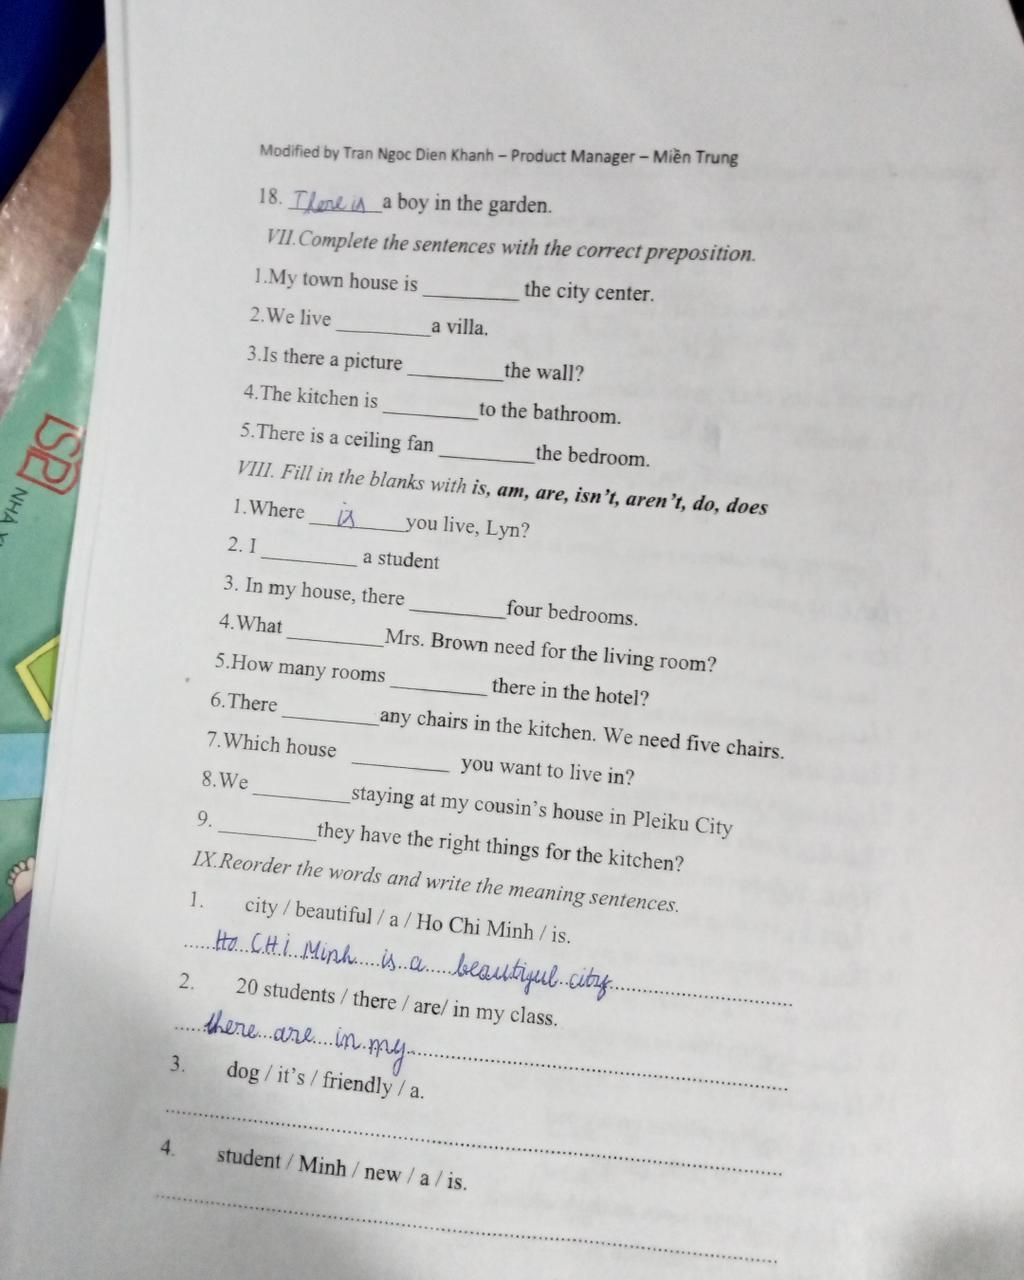 Modified by Tran Ngoc Dien Khanh – Product Manager – Miền Trung
18. There is a boy in the garden.
VII.Complete the sentences with the correct preposition.
1.My town house is _________ the city center.
2.We live _________ a villa.
3.Is there a picture _________ the wall?
4.The kitchen is _________ to the bathroom.
5.There is a ceiling fan _________ the bedroom.
VIII. Fill in the blanks with is, am, are, isn't, aren't, do, does
1.Where is you live, Lyn?
2. I _________ a student
3. In my house, there _________ four bedrooms.
4.What _________ Mrs. Brown need for the living room?
5.How many rooms _________ there in the hotel?
6.There _________ any chairs in the kitchen. We need five chairs.
7.Which house _________ you want to live in?
8.We _________ staying at my cousin's house in Pleiku City
9. _________ they have the right things for the kitchen?
IX.Reorder the words and write the meaning sentences.
1. city / beautiful / a / Ho Chi Minh / is.
Ho CHi Minh is a beautiful city
2. 20 students / there / are/ in my class.
there are in my
3. dog / it's / friendly / a.
4. student / Minh / new / a / is.
NHÀ